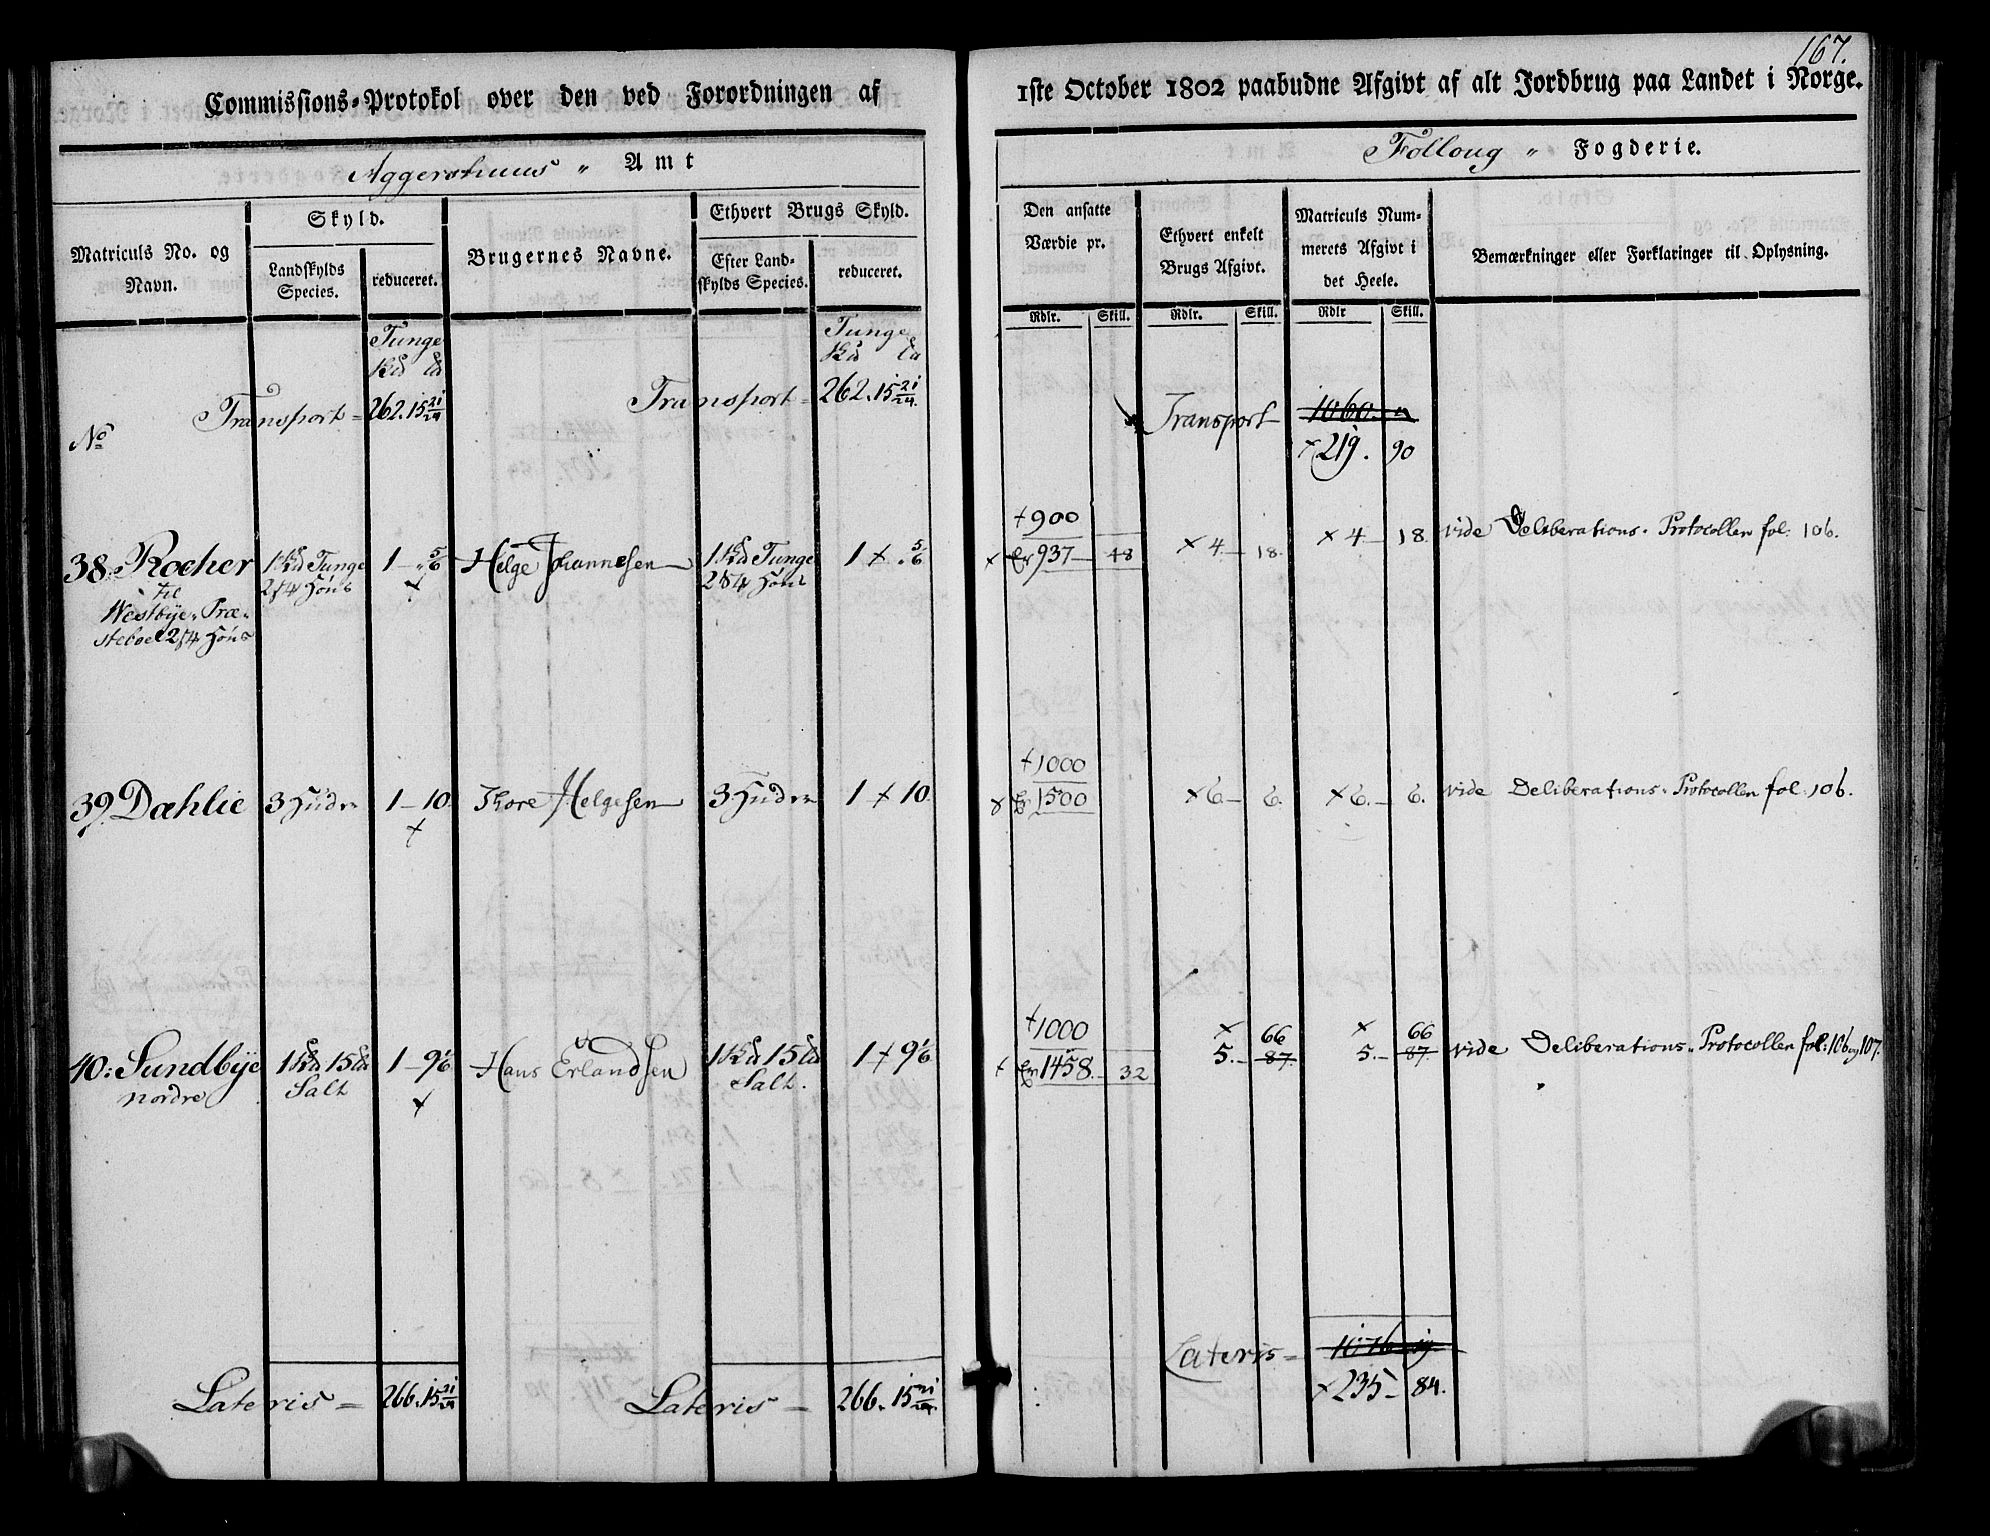 167.
Commissions-Protokol over den ved Forordningen af
1ste October 1802 paabudne Afgivt af alt Jordbrug paa Landet i Norge.
Aggershuus " Amt
Follong " Fogderie.
Matriculs No. og Navn.
Skyld.
Landskylds Species.
reduceret.
Brugernes Navne.
Ethvert Brugs Skyld.
Efter Landskylds Species.
reduceret.
Den ansatte Værdie pr.
Ethvert enkelt Brugs Afgivt.
Matriculs Nummerets Afgivt i det Heele.
Bemærkninger eller Forklaringer til Oplysning.
Rdlr. Skill. Rdlr. Skill. Rdlr Skill.
Tunge Tunge
No
Transport = 262. 15 21/24 Transport = 262. 15 21/24. Transport 1060. "
× 219. 90
+ 900
38: Rocher 1 Tunge 1 - " 5/6 Helge Johannesen 1 Tunge 1 + " 5/6 × 937 - 48 × 4 - 18. × 4 - 18. vide Deliberations-Protocollen fol: 106.
til
Westbye-Præ-
+ 1000
39. Dæhlie 3 Huder 1 - 10. Thore Helgesen 3 Huder 1 + 10. 1500 × 6 - 6. × 6. - 6. vide Deliberations-Protocollen fol: 106.
+ 1000 × 66 × 66
40: Sundbÿe 1 15 1 - 9 1/6 Hans Erlandsen 1 15 1 + 9 1/6 1458. - 32 5. - 87. 5. - 87 vide Deliberations-Protocollen fol: 106 og 107.
nordre Salt Salt.
Lateris = 266. 15 21/24 Lateris = 266. 15 21/24. Lateris = 1076 - 19.
× 235 - 84.